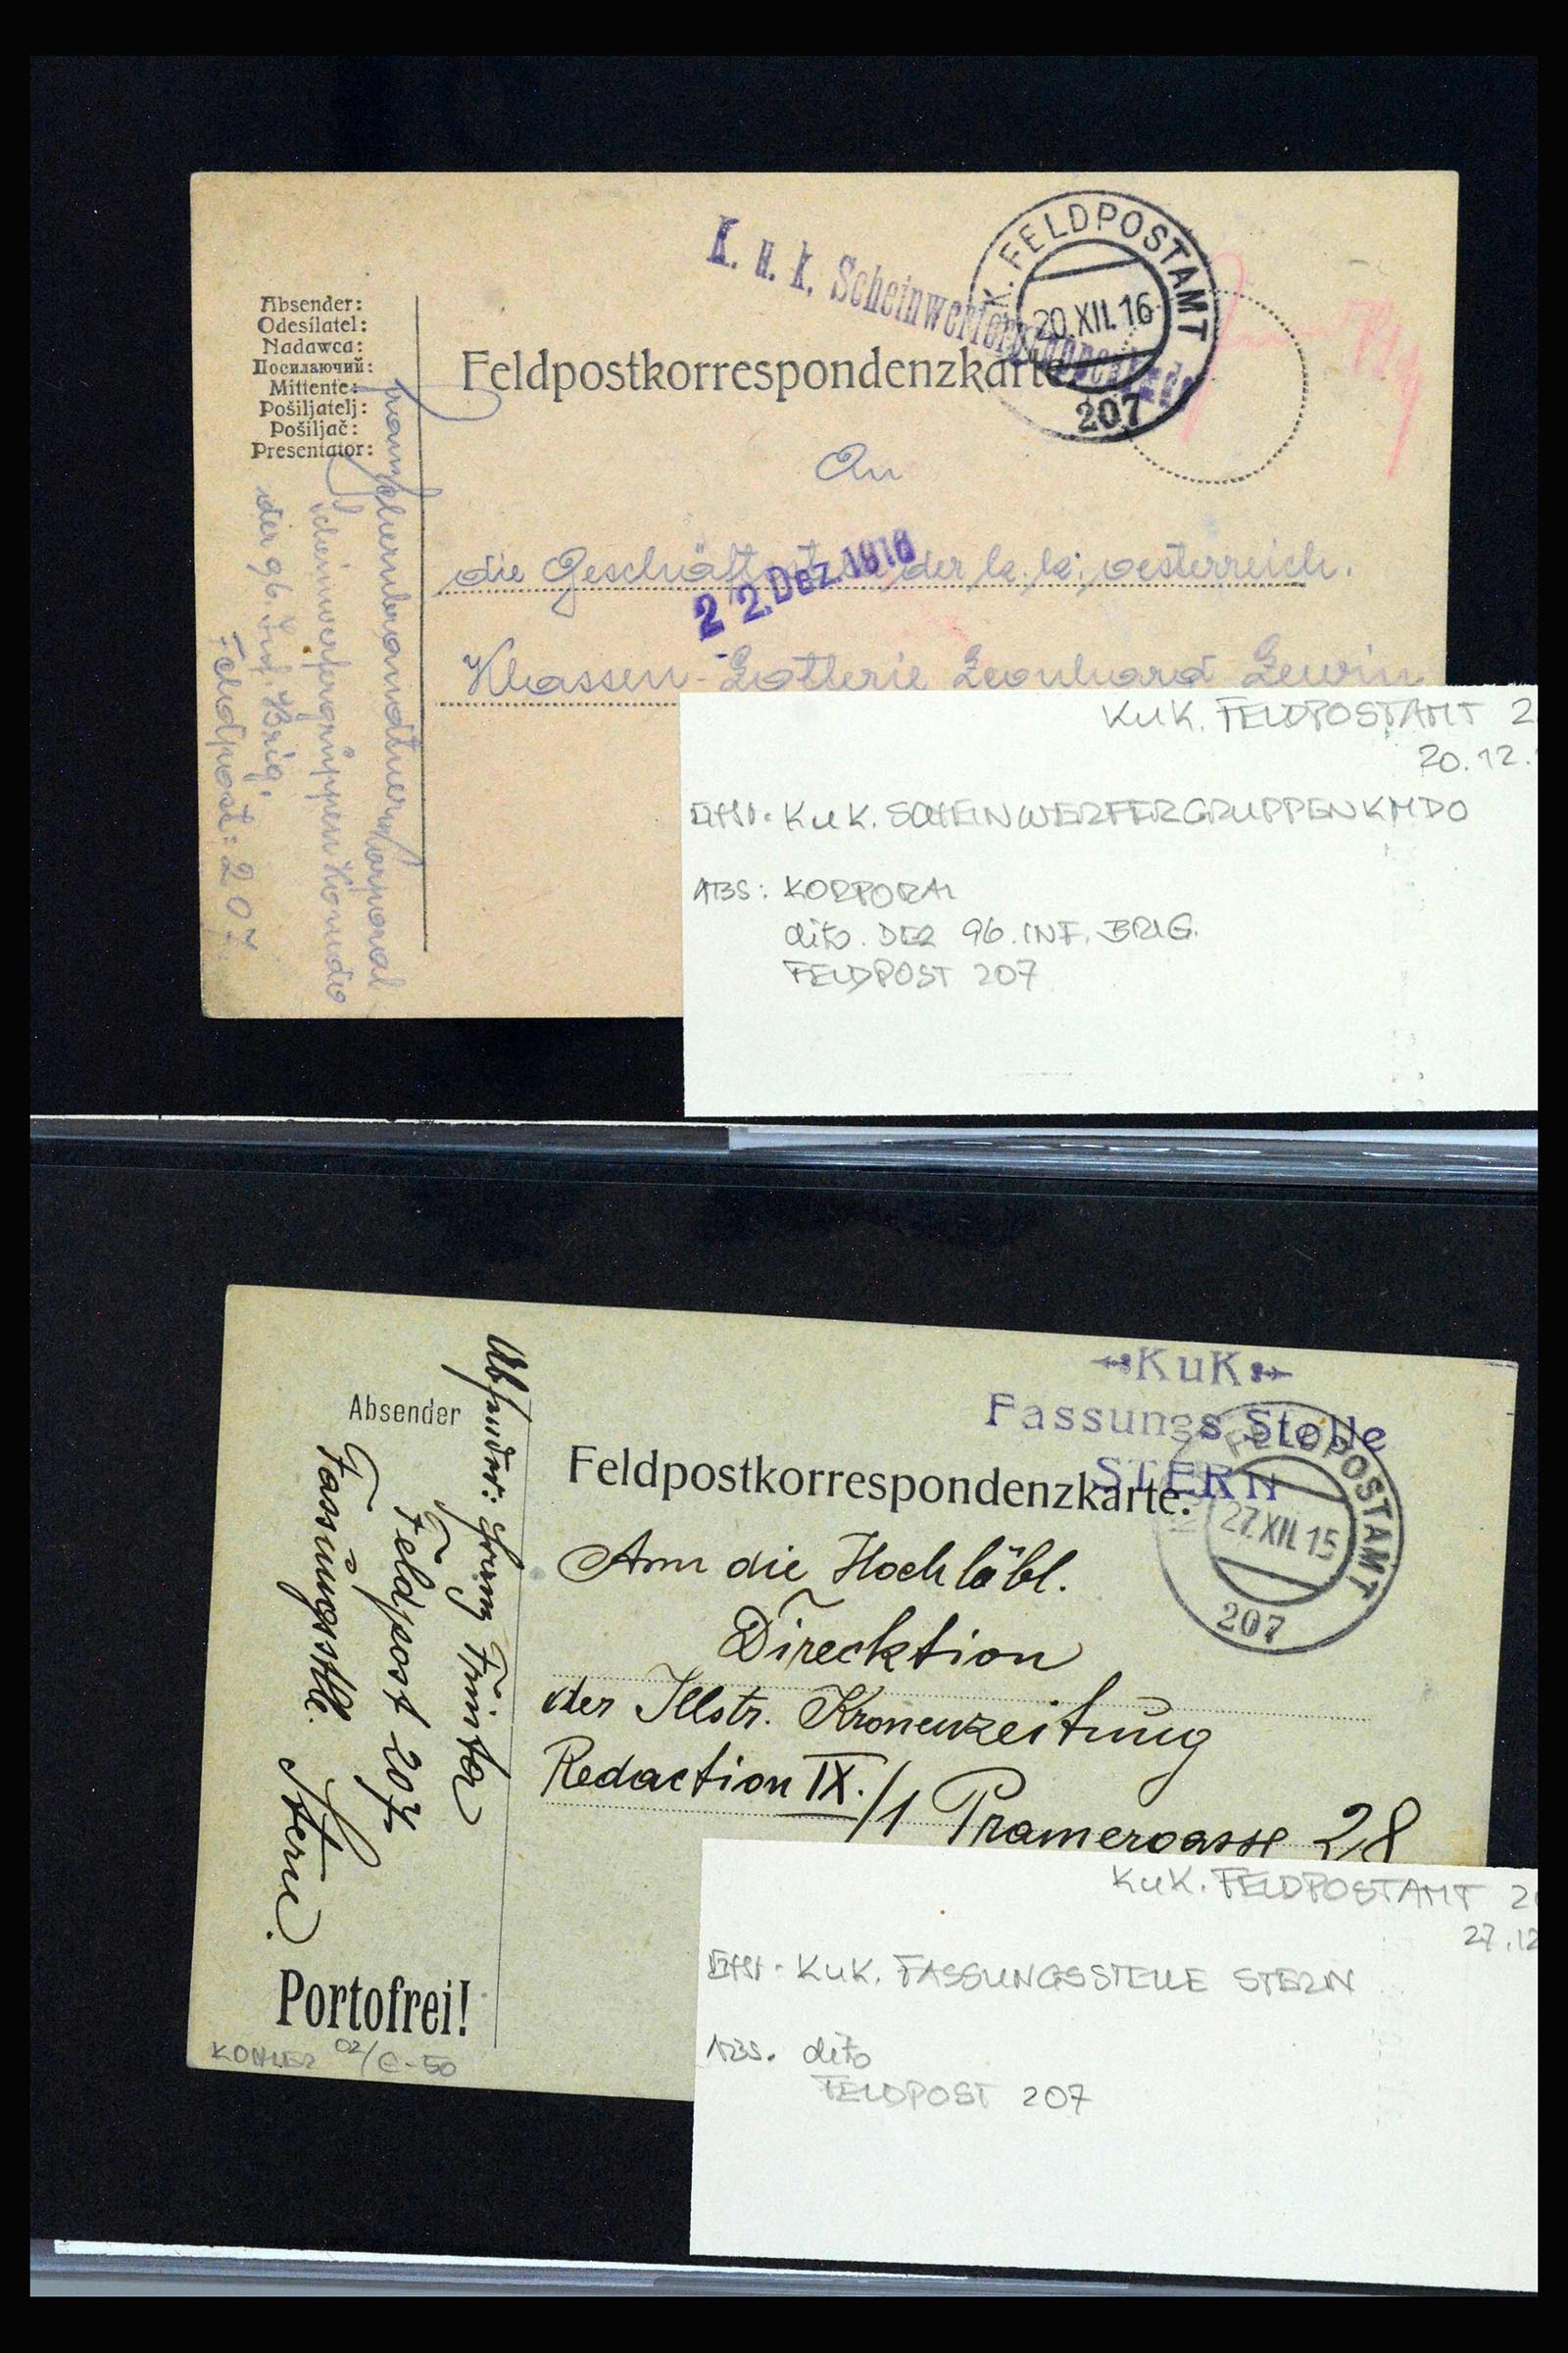 K. u. k. Scheinwerfergruppenkmdo
K. FELDPOSTAMT
20.XII.16
207
Absender:
Odesílatel:
Nadawca:
Посилаючий:
Mittente:
Pošiljatelj:
Pošiljač:
Presentator:
Feldpostkorrespondenzkarte
An
die Geschäftsst der k. k. oesterreich.
22.Dez.1916
Klassen-Lotterie Leonhard Lewin
Korporal
Scheinwerfergruppen Komdo
der 96. Inf. Brig.
Feldpost: 207
KuK. FELDPOSTAMT 2
20.12.
KuK. SCHEINWERFERGRUPPENKMDO
ABS: KORPORAL
dito. DER 96. INF. BRIG.
FELDPOST 207
KuK
Fassungs Stelle
STERN
FELDPOSTAMT
27.XII.15
207
Absender
Feldpostkorrespondenzkarte.
Absender: Franz
Feldpost 207
Fassungsstlle. Stern.
Ann die Hochlöbl.
Direcktion
der Illstr. Kronenzeitung
Redaction IX./1 Pramergasse 28
Portofrei!
KOHLER 02/€-50
KuK. FELDPOSTAMT 2
27.12
KuK. FASSUNGSSTELLE STERN
ABS. dito
FELDPOST 207